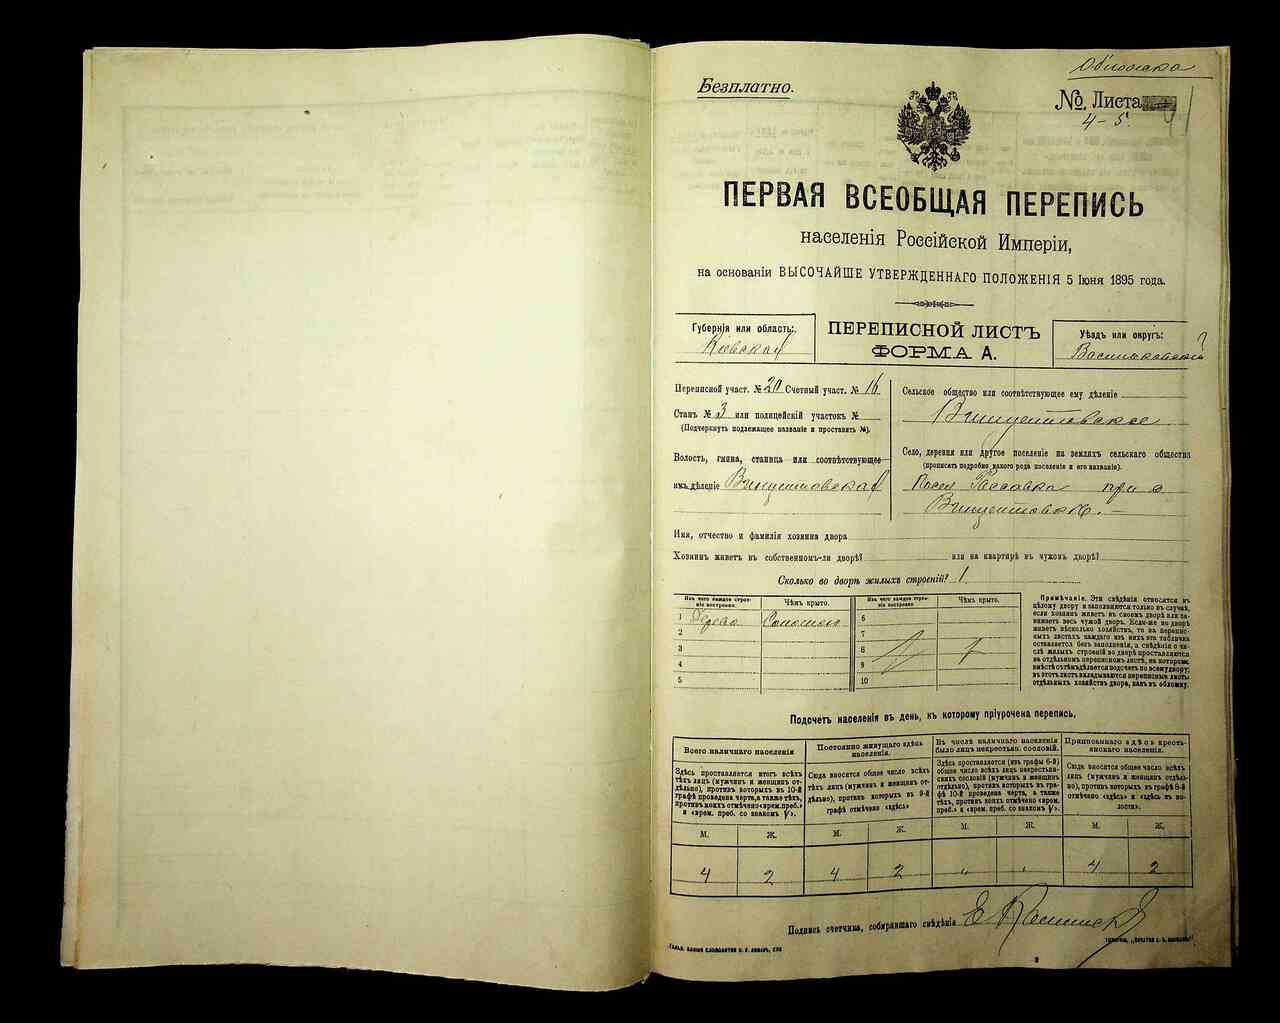 Обложка
Безплатно.
№. Листа
4-5.
ПЕРВАЯ ВСЕОБЩАЯ ПЕРЕПИСЬ
населенія Россійской Имперіи,
на основаніи ВЫСОЧАЙШЕ УТВЕРЖДЕННАГО ПОЛОЖЕНІЯ 5 Іюня 1895 года.
Губернія или область:
Кіевская
ПЕРЕПИСНОЙ ЛИСТЪ
ФОРМА А.
Уѣздъ или округъ:
Васильковскій
Переписной участ. № 20 Счетный участ. № 16
Станъ № 3 или полицейскій участокъ №
(Подчеркнуть подлежащее названіе и проставить №).
Волость, гмина, станица или соотвѣтствующее
имъ дѣленіе Винцентовская
Сельское общество или соотвѣтствующее ему дѣленіе
Винцентовское
Село, деревня или другое поселеніе на земляхъ сельскаго общества
(прописать подробно, какого рода поселеніе и его названіе).
при с.
Имя, отчество и фамилія хозяина двора
Хозяинъ живетъ въ собственномъ-ли дворѣ? или на квартирѣ въ чужомъ дворѣ?
Сколько во дворѣ жилыхъ строеній? 1
Изъ чего каждое строеніе построено.
Чѣмъ крыто.
Изъ чего каждое строеніе построено.
Чѣмъ крыто.
1 Дерева Соломою
2
3
4
5
6
7
8
9
10
Примѣчаніе. Эти свѣдѣнія относятся къ
цѣлому двору и заполняются только въ случаѣ,
если хозяинъ живетъ въ своемъ дворѣ или за-
нимаетъ весь чужой дворъ. Если-же во дворѣ
живетъ нѣсколько хозяйствъ, то на перепис-
ныхъ листахъ каждаго изъ нихъ эта табличка
оставляется безъ заполненія, а свѣдѣнія о чи-
слѣ жилыхъ строеній во дворѣ проставляются
на отдѣльномъ переписномъ листѣ, на которомъ
вмѣстѣ съ тѣмъ дѣлается подсчетъ по всему двору;
въ этотъ листъ вкладываются переписные листы
отдѣльныхъ хозяйствъ двора, какъ въ обложку.
Подсчетъ населенія въ день, къ которому пріурочена перепись.
Всего наличнаго населенія
Здѣсь проставляется итогъ всѣхъ
тѣхъ лицъ (мужчинъ и женщинъ от-
дѣльно), противъ которыхъ въ 10-й
графѣ проведена черта, а также тѣхъ,
противъ коихъ отмѣчено «врем. преб.»
и «врем. преб. со знакомъ V».
Постоянно живущаго здѣсь
населенія.
Сюда вносится общее число всѣхъ
тѣхъ лицъ (мужчинъ и женщинъ от-
дѣльно), противъ которыхъ въ 9-й
графѣ отмѣчено «здѣсь»
Въ числѣ наличнаго населенія
было лицъ некрестьян. сословій.
Здѣсь проставляется (изъ графы 6-й)
общее число всѣхъ лицъ некрестьян-
скихъ сословій (мужчинъ и женщинъ
отдѣльно), противъ которыхъ въ гра-
фѣ 10-й проведена черта, а также
тѣхъ, противъ коихъ отмѣчено «врем.
преб.» и «врем. преб. со знакомъ V».
Приписаннаго здѣсь кресть-
янскаго населенія.
Сюда вносится общее число всѣхъ
лицъ (мужчинъ и женщинъ отдѣль-
но), противъ которыхъ въ графѣ 8-й
отмѣчено «здѣсь» и «здѣсь въ во-
лости».
М. Ж. М. Ж. М. Ж. М. Ж.
4 2 4 2 „ „ 4 2
Подпись счетчика, собиравшаго свѣдѣнія